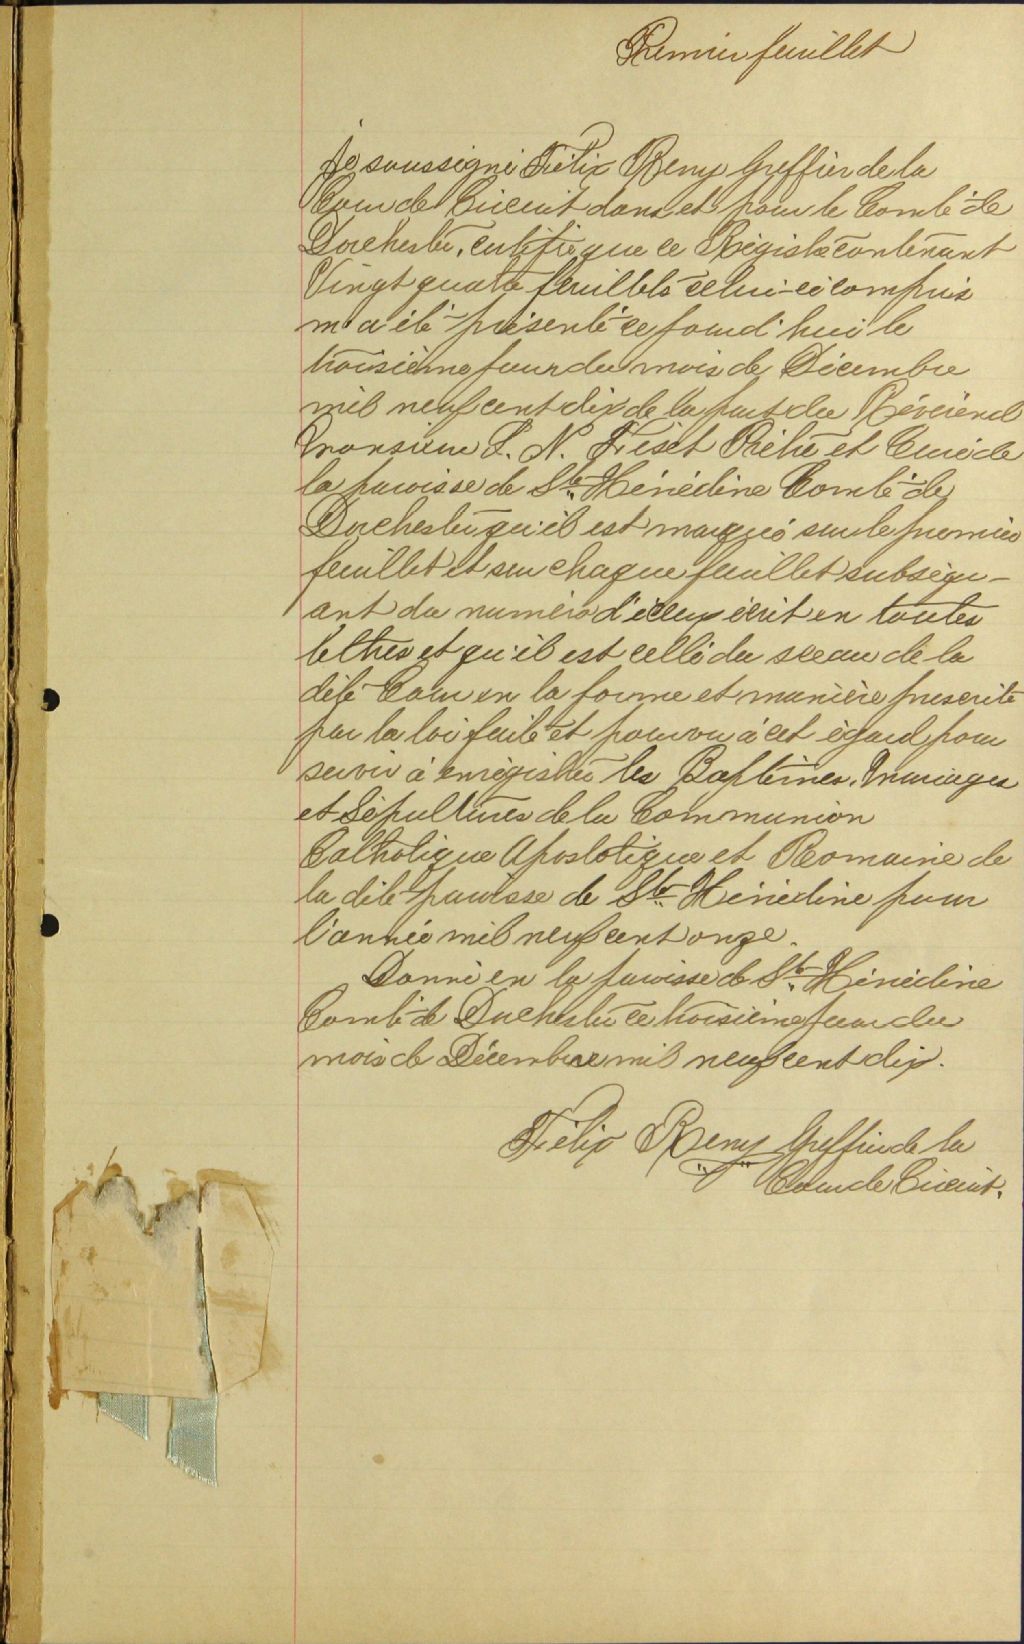 Premier feuillet
Je soussigné Félix Remy Greffier de la
Cour de Circuit dans et pour le Comté de
Dorchester, certifie que ce Régistre contenant
Vingt quatre feuillets celui-ci compris
m'a été présenté ce jourd'hui le
troisième jour du mois de Décembre
mil neuf cent dix de la part du Révérend
Monsieur L. N. Fiset Prêtre et Curé de
la paroisse de Ste Hénédine Comté de
Dorchester qu'il est marqué sur le premier
feuillet et sur chaque feuillet subséqu-
ant du numéro d'iceux écrit en toutes
lettres et qu'il est cellé du sceau de la
dite Cour en la forme et manière prescrite
par la loi faite et pourvu à cet égard pour
servir à enrégistrer les Baptêmes, Mariages
et Sépultures de la Communion
Catholique Apostolique et Romaine de
la dite paroisse de Ste Hénédine pour
l'année mil neuf cent onze.
Donné en la paroisse de Ste Hénédine
Comté de Dorchester ce troisième jour du
mois de Décembre mil neuf cent dix.
Félix Remy Greffier de la
Cour de Circuit.